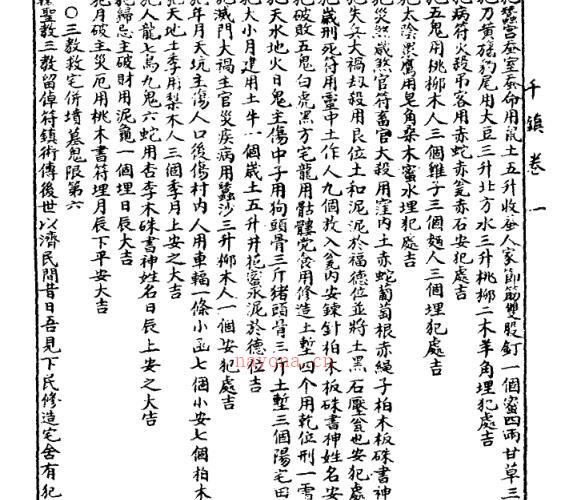 千鎮卷一
蠶宫蚕室蚕命用鼠土五升收蚕人家節筯雙股釘一個蜜四兩甘草三
犯刀黄旛豹尾用大豆三升北方水三升桃柳二木羊角埋犯處吉
犯病符火殺吊客用赤蛇赤瓮赤石安犯處吉
犯五鬼用桃柳木人三個雞子三個麵人三個埋犯處吉
犯太陰黑鷹用皂角桑木蜜水埋犯處吉
犯災煞歲煞官符畜官大殺用窪内土赤蛇葡萄根赤繩子柏木板硃書神
犯失兵大禍刼殺用艮位土和泥泥於福德位並將土黑石壓瓮也安犯處
犯歲刑死符用䆫中土作人九個教入瓮内安鍊針柏木板硃書神姓名安
犯破敗五鬼白虎黑方宅龍用骷髏党食用修造土塹四個用乾位刑一雪
犯天水地火日鬼主傷中子用狗頭骨三斤猪頭骨三斤土塹三個陽宅田
犯大小月建用土牛一個歲土五升井花蜜水泥於德位吉
犯滅門大禍主官災疾病用蠶沙三升柳木人一個安犯處吉
犯年月天坑主傷人口後傷村内人用車輻一條小函七個小安七個柏木
犯天地土李用梨木人三個李月上安之大吉
犯人龍七鳥九鬼六蛇用杏李木硃書神姓名日辰上安之大吉
犯歸忌主破財用泥龜一個埋日辰大吉
犯月破主災厄用桃木書符埋月辰下平安大吉
○三教救宅併墳墓鬼限第六
釋聖教三教留倬符鎮術傳後世以濟民間昔日吾見下民修造宅舍有犯
nayona.cn